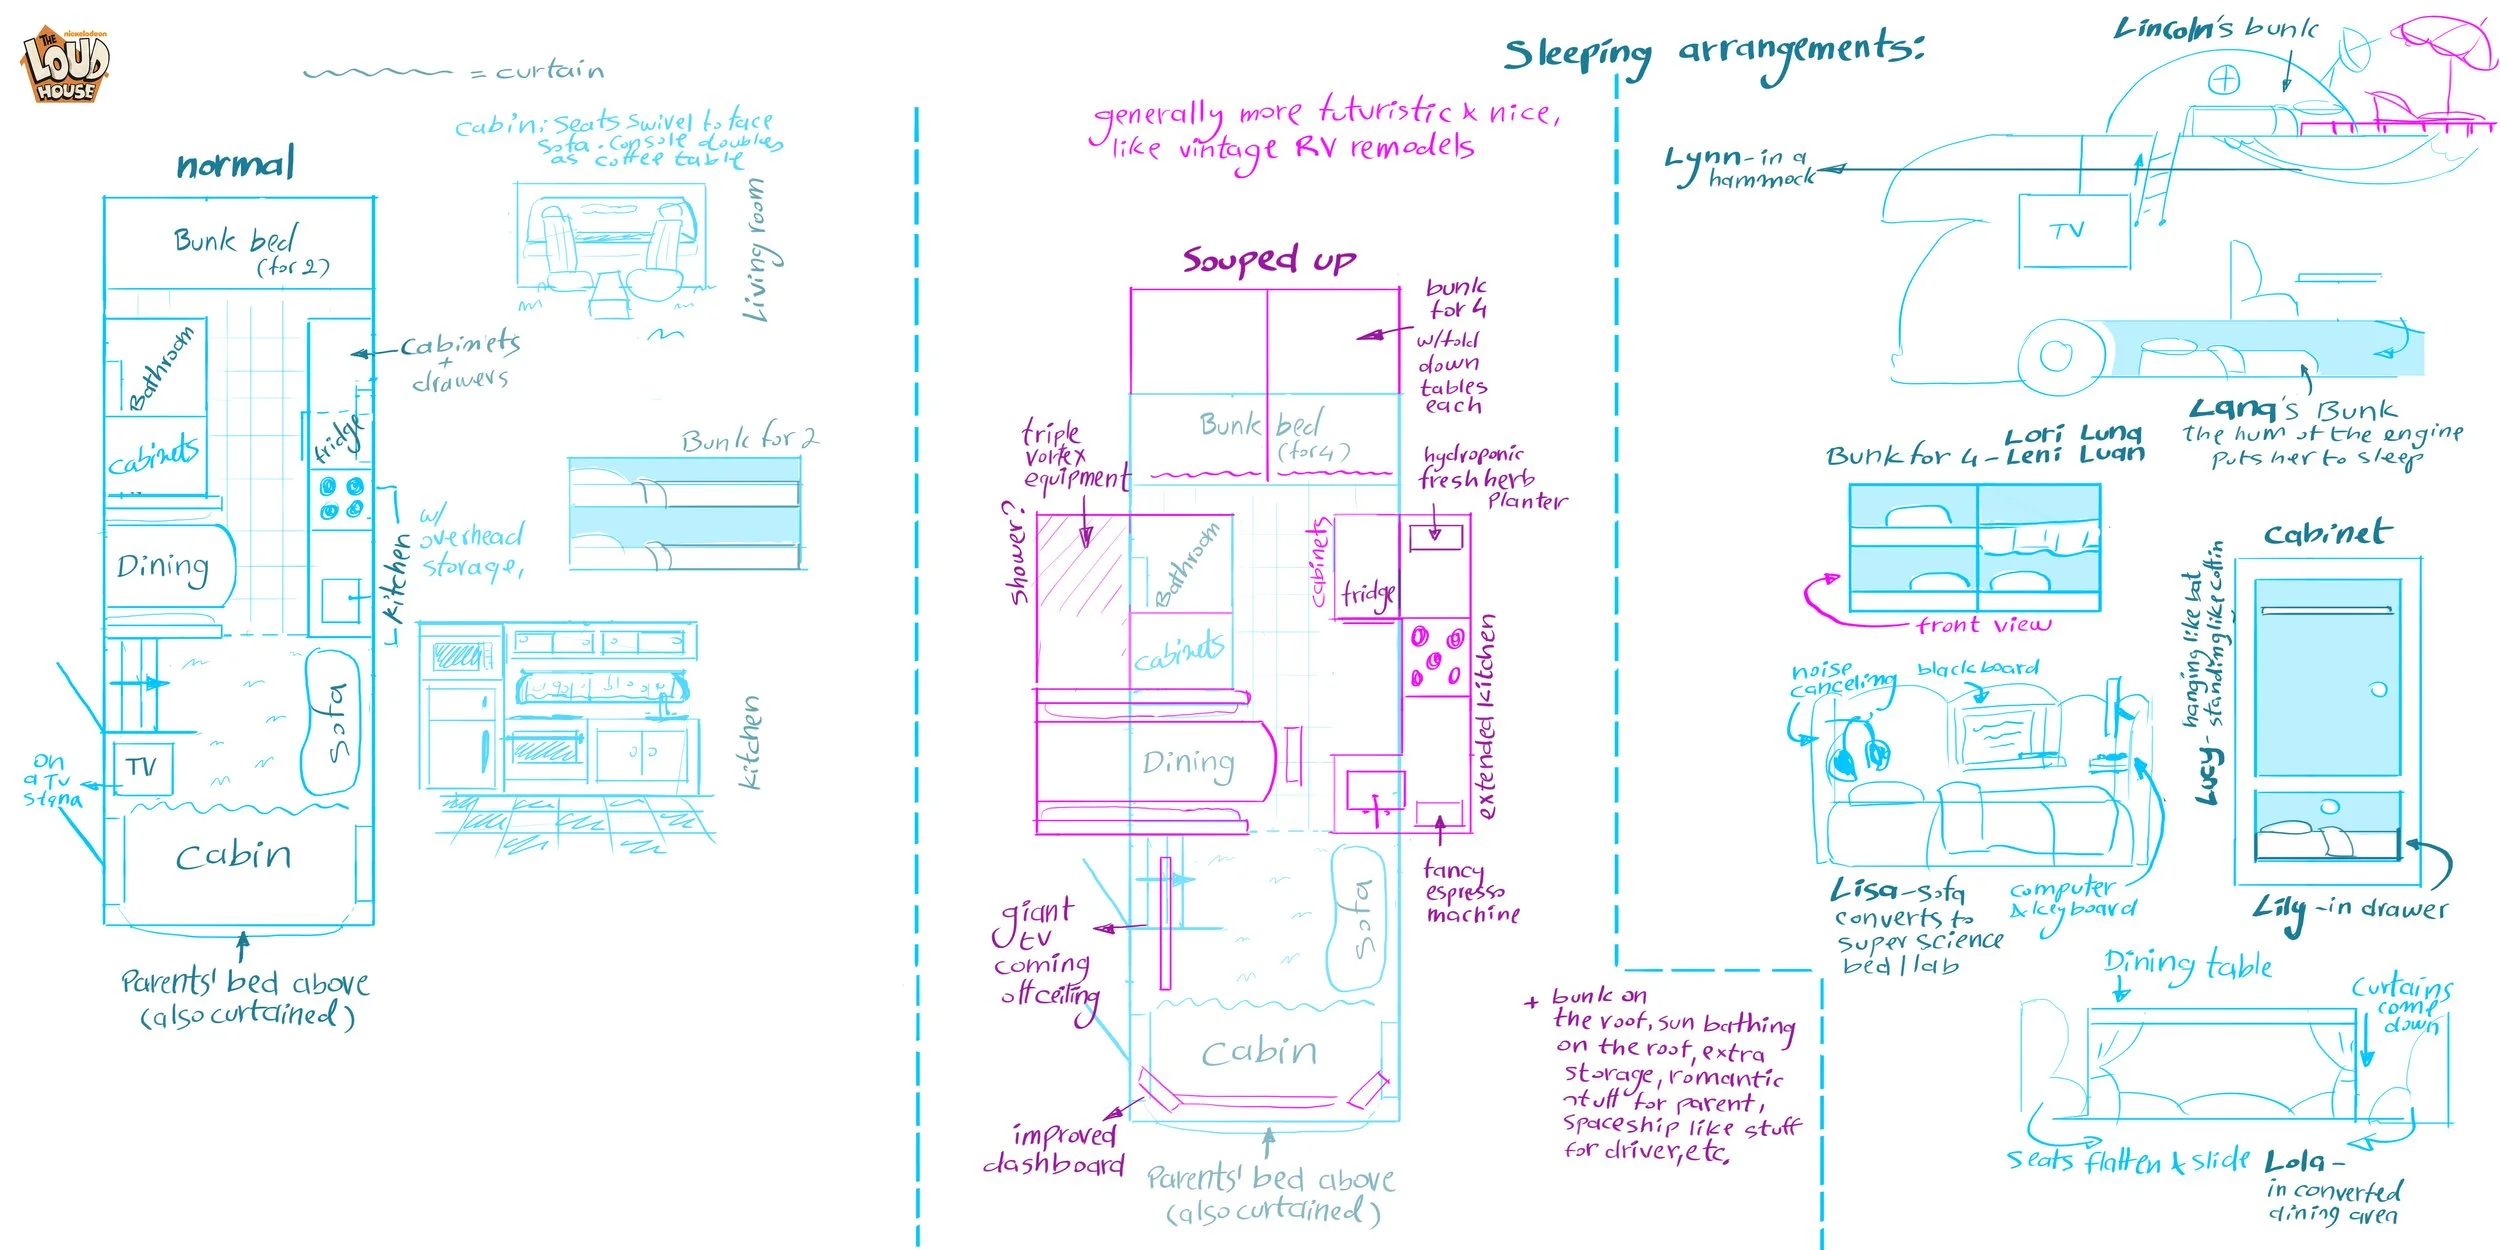 nickelodeon
THE
LOUD
HOUSE
= curtain
cabin: Seats swivel to face
sofa. Console doubles
as coffee table
normal
Bunk bed
(for 2)
Living room
Bathroom
Cabinets
+
drawers
cabinets
fridge
Bunk for 2
Dining
kitchen
w/
overhead
storage,
Sofa
TV
on
a TV
stand
kitchen
Cabin
Parents' bed above
(also curtained)
generally more futuristic & nice,
like vintage RV remodels
Souped up
bunk
for 4
w/fold
down
tables
each
Bunk bed
(for 4)
triple
vortex
equipment
hydroponic
fresh herb
planter
shower?
Bathroom
cabinets
fridge
cabinets
extended kitchen
Dining
fancy
espresso
machine
giant
tv
coming
off ceiling
Sofa
Cabin
improved
dashboard
Parents' bed above
(also curtained)
+ bunk on
the roof, sun bathing
on the roof, extra
storage, romantic
stuff for parent,
spaceship like stuff
for driver, etc.
Sleeping arrangements:
Lincoln's bunk
Lynn - in a
hammock
TV
Lana's Bunk
the hum of the engine
puts her to sleep
Bunk for 4 - Lori Luna
Leni Luan
front view
cabinet
Lucy - hanging like bat
standing like coffin
noise
canceling
blackboard
Lisa - sofa
converts to
super science
bed / lab
computer
& keyboard
Lily - in drawer
Dining table
Curtains
come
down
Seats flatten & slide
Lola -
in converted
dining area